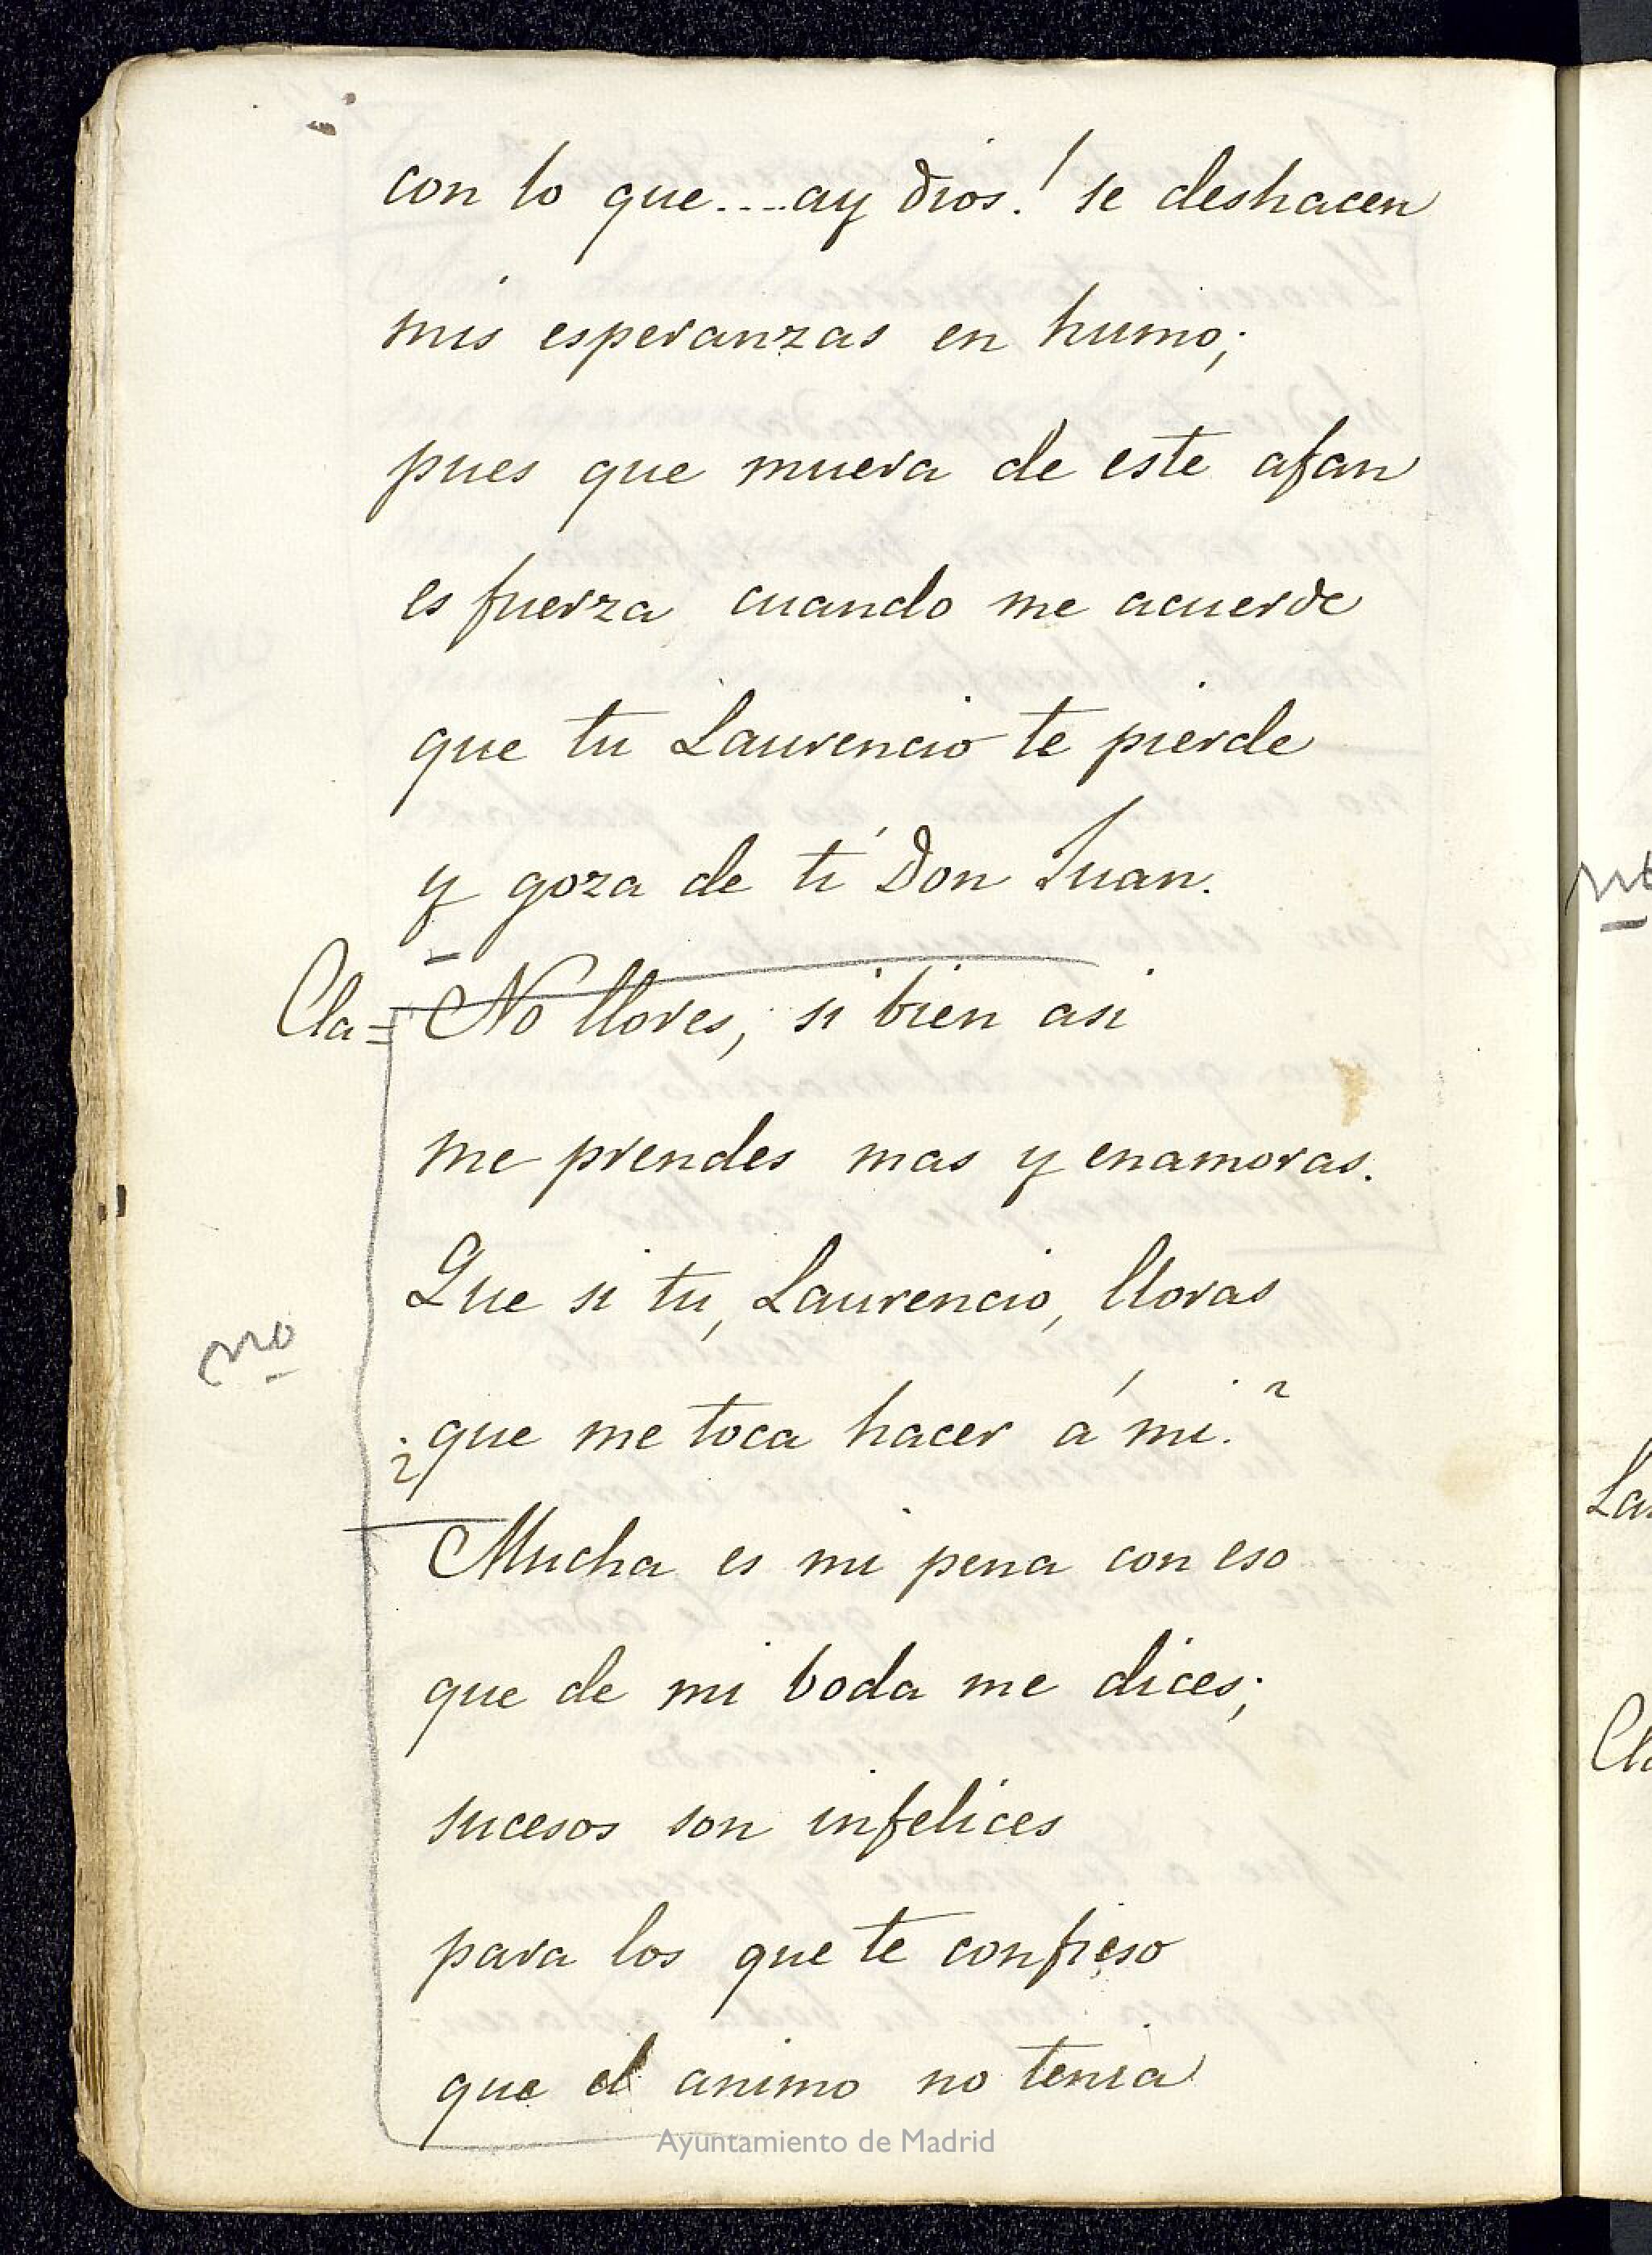 con lo que....ay dios! se deshacen
mis esperanzas en humo;
pues que muera de este afan
es fuerza cuando me acuerde
que tu Laurencio te pierde
y goza de tí Don Juan.
Cla= No llores, si bien asi
me prendes mas y enamoras.
Que si tu, Laurencio, lloras
no
¿que me toca hacer á mi?
Mucha es mi pena con eso
que de mi boda me dices;
sucesos son infelices
para los que te confieso
que el animo no tenia
Ayuntamiento de Madrid
no
La
Cla